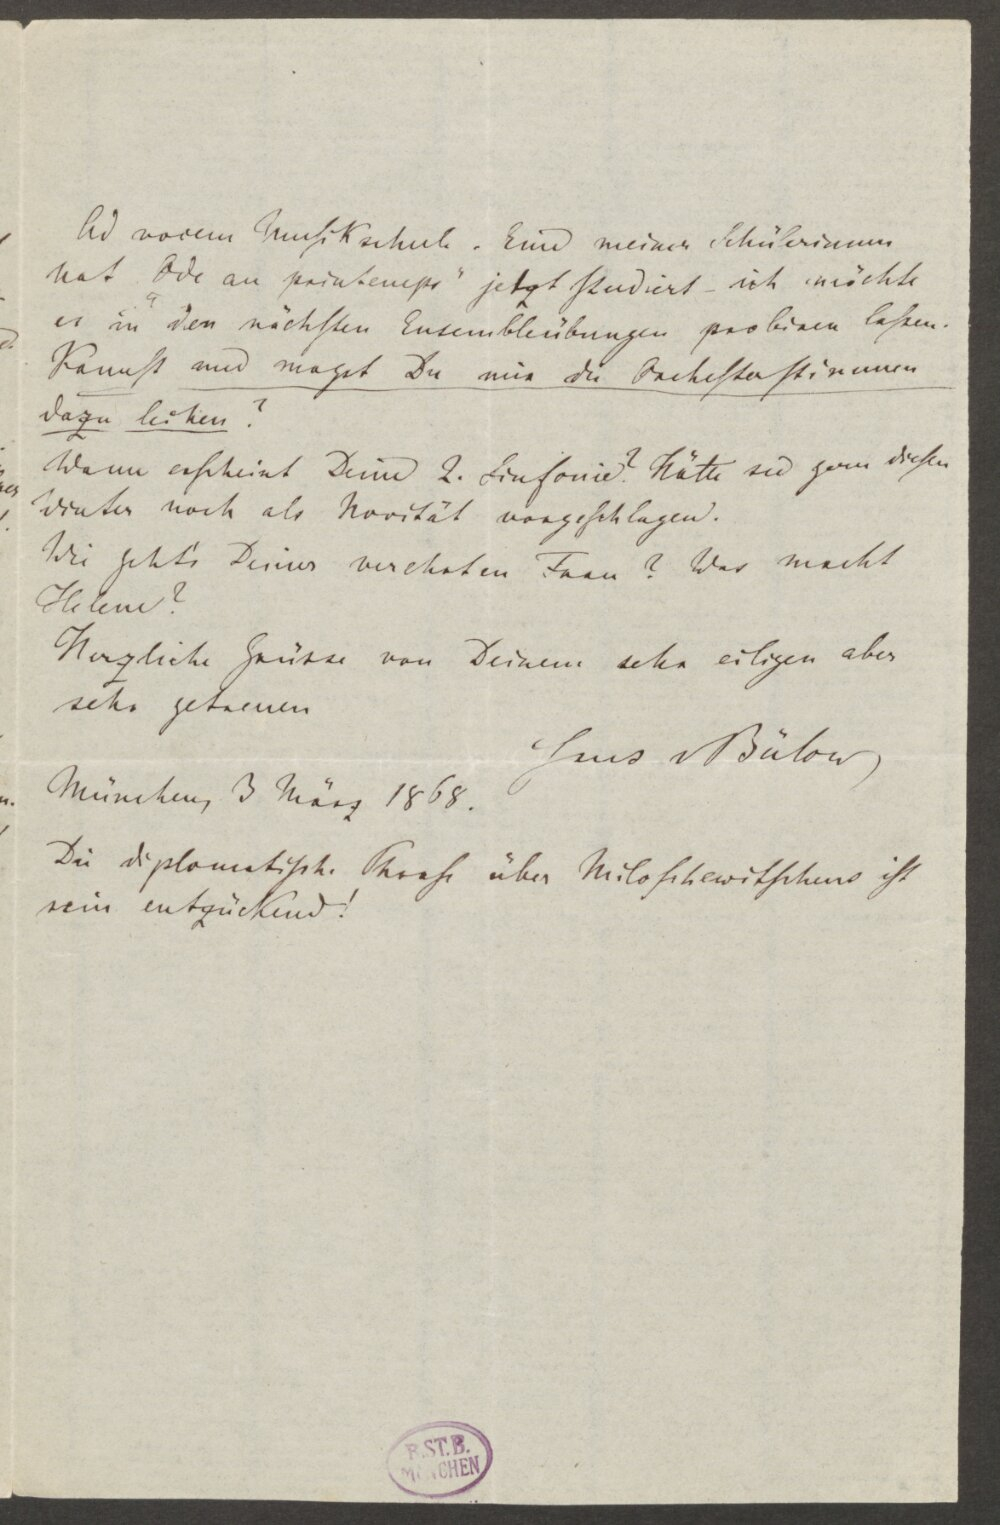 Ad vocem Musikschule. Eine meiner Schülerinnen
hat „Ode au printemps“ jetzt studiert – ich möchte
es in den nächsten Ensembleübungen probiren lassen.
Kannst und magst Du mir die Orchesterstimmen
dazu leihen?
Wann erscheint Deine 2. Sinfonie? Hätte sie gern diesen
Winter noch als Novität vorgeschlagen.
Wie geht's Deiner verehrten Frau? Was macht
Helene?
Herzliche Grüsse von Deinem sehr eiligen aber
sehr getreuen
Hans v Bülow
München, 3 März 1868.
Die diplomatische Phrase über Miloschewitschens ist
rein entzückend!
B.ST.B.
MÜNCHEN